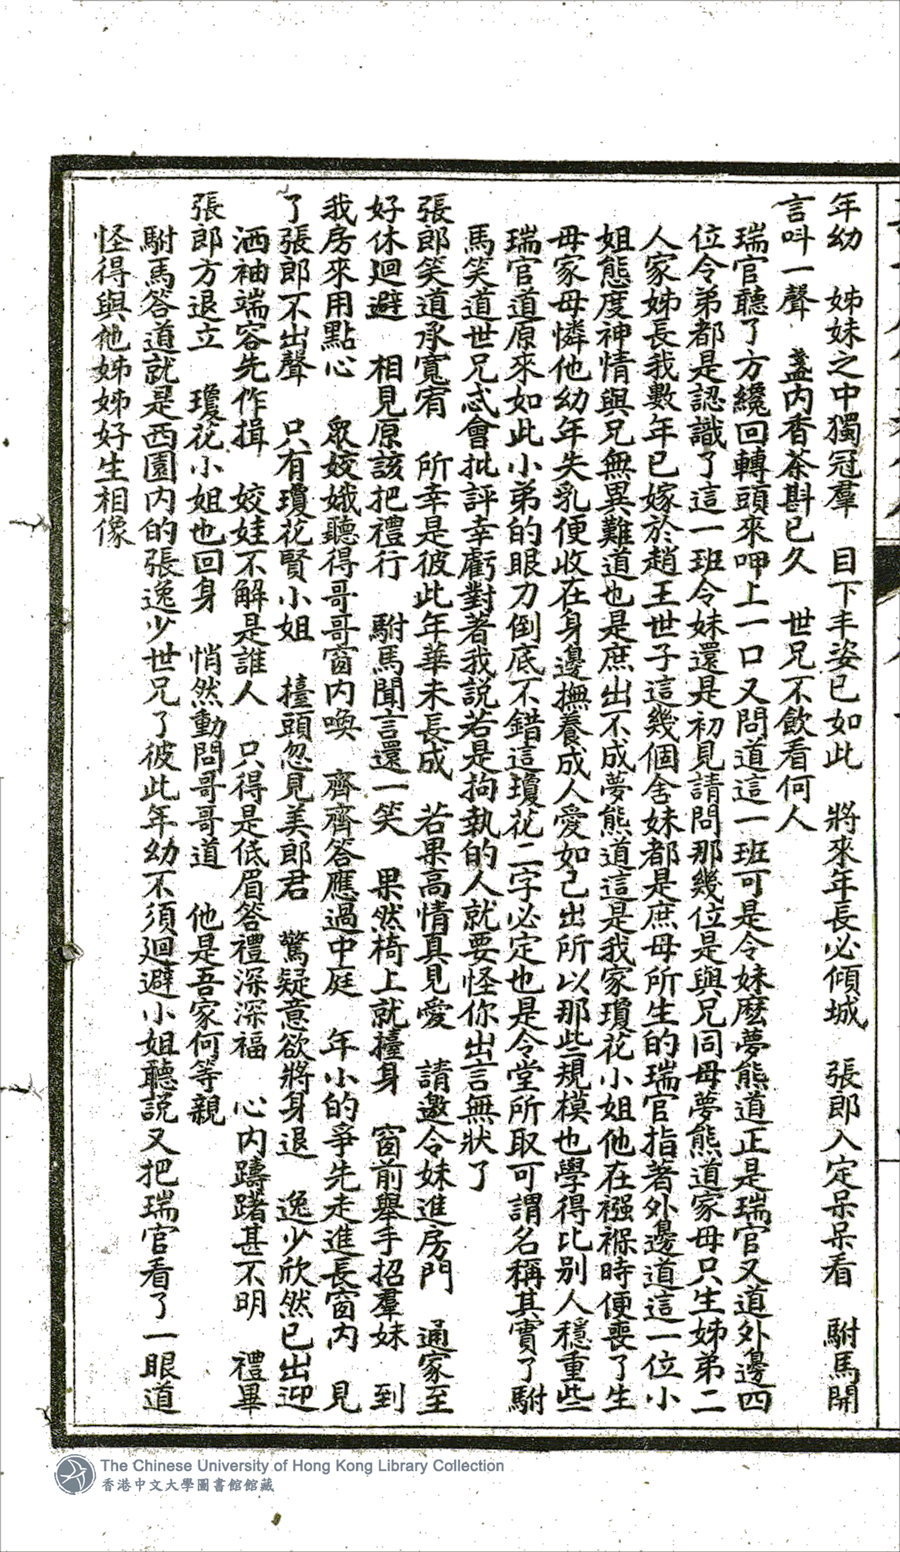 年幼　姊妹之中獨冠羣　目下丰姿已如此　將來年長必傾城　張郎入定呆呆看　駙馬開
言呌一聲　盞內香茶斟已久　世兄不飲看何人
瑞官聽了方纔回轉頭來呷上一口又問道這一班可是令妹麼夢熊道正是瑞官又道外邊四
位令弟都是認識了這一班令妹還是初見請問那幾位是與兄同母夢熊道家母只生姊弟二
人家姊長我數年已嫁於趙王世子這幾個舍妹都是庶母所生的瑞官指著外邊道這一位小
姐態度神情與兄無異難道也是庶出不成夢熊道這是我家瓊花小姐他在襁褓時便喪了生
母家母憐他幼年失乳便收在身邊撫養成人愛如己出所以那些規模也學得比別人穩重些
瑞官道原來如此小弟的眼力倒底不錯這瓊花二字必定也是令堂所取可謂名稱其實了駙
馬笑道世兄忒會批評幸虧對著我説若是拘執的人就要怪你出言無狀了
張郎笑道承寬宥　所幸是彼此年華未長成　若果高情真見愛　請邀令妹進房門　通家至
好休迴避　相見原該把禮行　駙馬聞言還一笑　果然椅上就擡身　窗前舉手招羣妹　到
我房來用點心　眾姣娥聽得哥哥窗內喚　齊齊答應過中庭　年小的爭先走進長窗內　見
了張郎不出聲　只有瓊花賢小姐　擡頭忽見美郎君　驚疑意欲將身退　逸少欣然已出迎
洒袖端容先作揖　姣娃不解是誰人　只得是低眉答禮深深福　心內躊躇甚不明　禮畢
張郎方退立　瓊花小姐也回身　悄然動問哥哥道　他是吾家何等親
駙馬答道就是西園內的張逸少世兄了彼此年幼不須迴避小姐聽説又把瑞官看了一眼道
怪得與他姊姊好生相像
The Chinese University of Hong Kong Library Collection
香港中文大學圖書館館藏